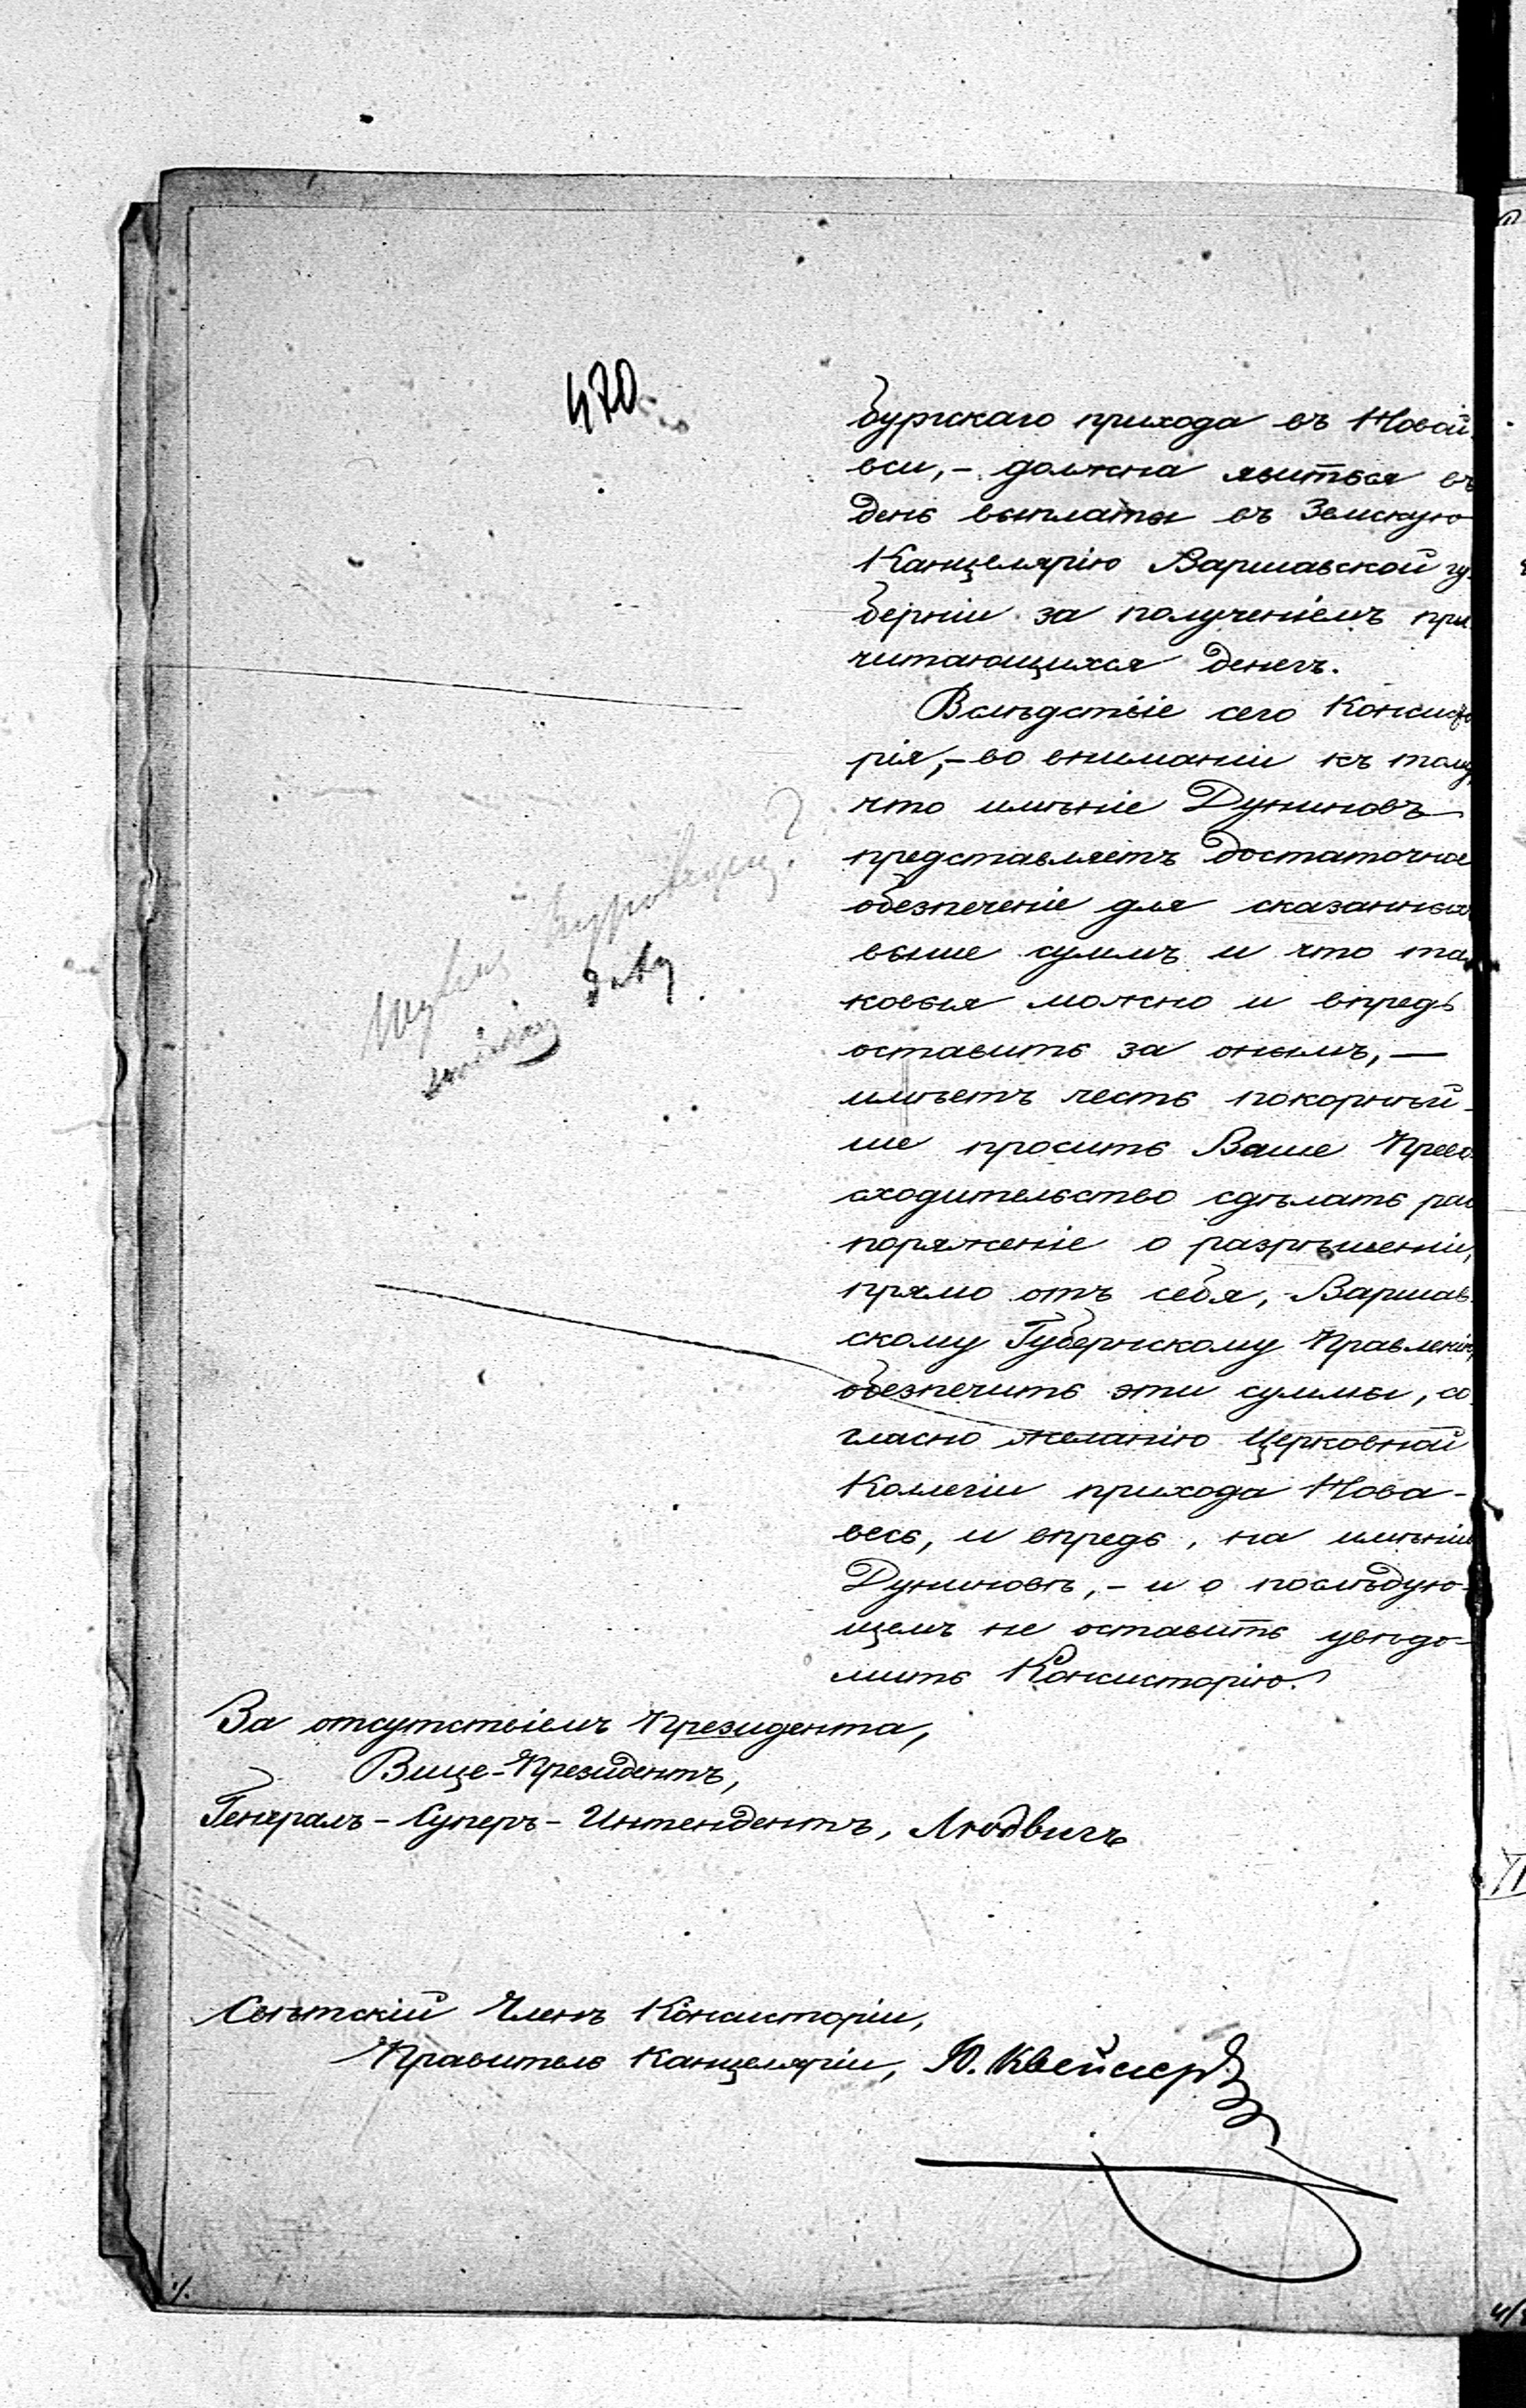 470
бургскаго прихода въ Новой
вси, – должна явиться въ
день выплаты въ Земскую
Канцелярію Варшавской гу-
берніи за полученіемъ при-
читающихся денегъ.
Вслѣдствіе сего Консисто
рія, – во вниманіи къ тому,
что имѣніе Дуниновъ
представляетъ достаточное
обезпеченіе для сказанныхъ
выше суммъ и что та
ковыя можно и впредь
оставить за онымъ, —
имѣетъ честь покорнѣй-
ше просить Ваше Прево
сходительство сдѣлать рас
поряженіе о разрѣшеніи,
прямо отъ себя, Варшав-
скому Губернскому Правленію,
обезпечить эти суммы, со-
гласно желанію Церковной
Коллегіи прихода Нова-
весь, и впредь, на имѣніи
Дуниновъ, – и о послѣдую-
щемъ не оставить увѣдо-
мить Консисторію.
За отсутствіемъ Президента,
Вице-Президентъ,
Генералъ-Суперъ-Интендентъ, Людвигъ
Свѣтскій Членъ Консисторіи,
Правитель Канцеляріи, Ю. Квейсер